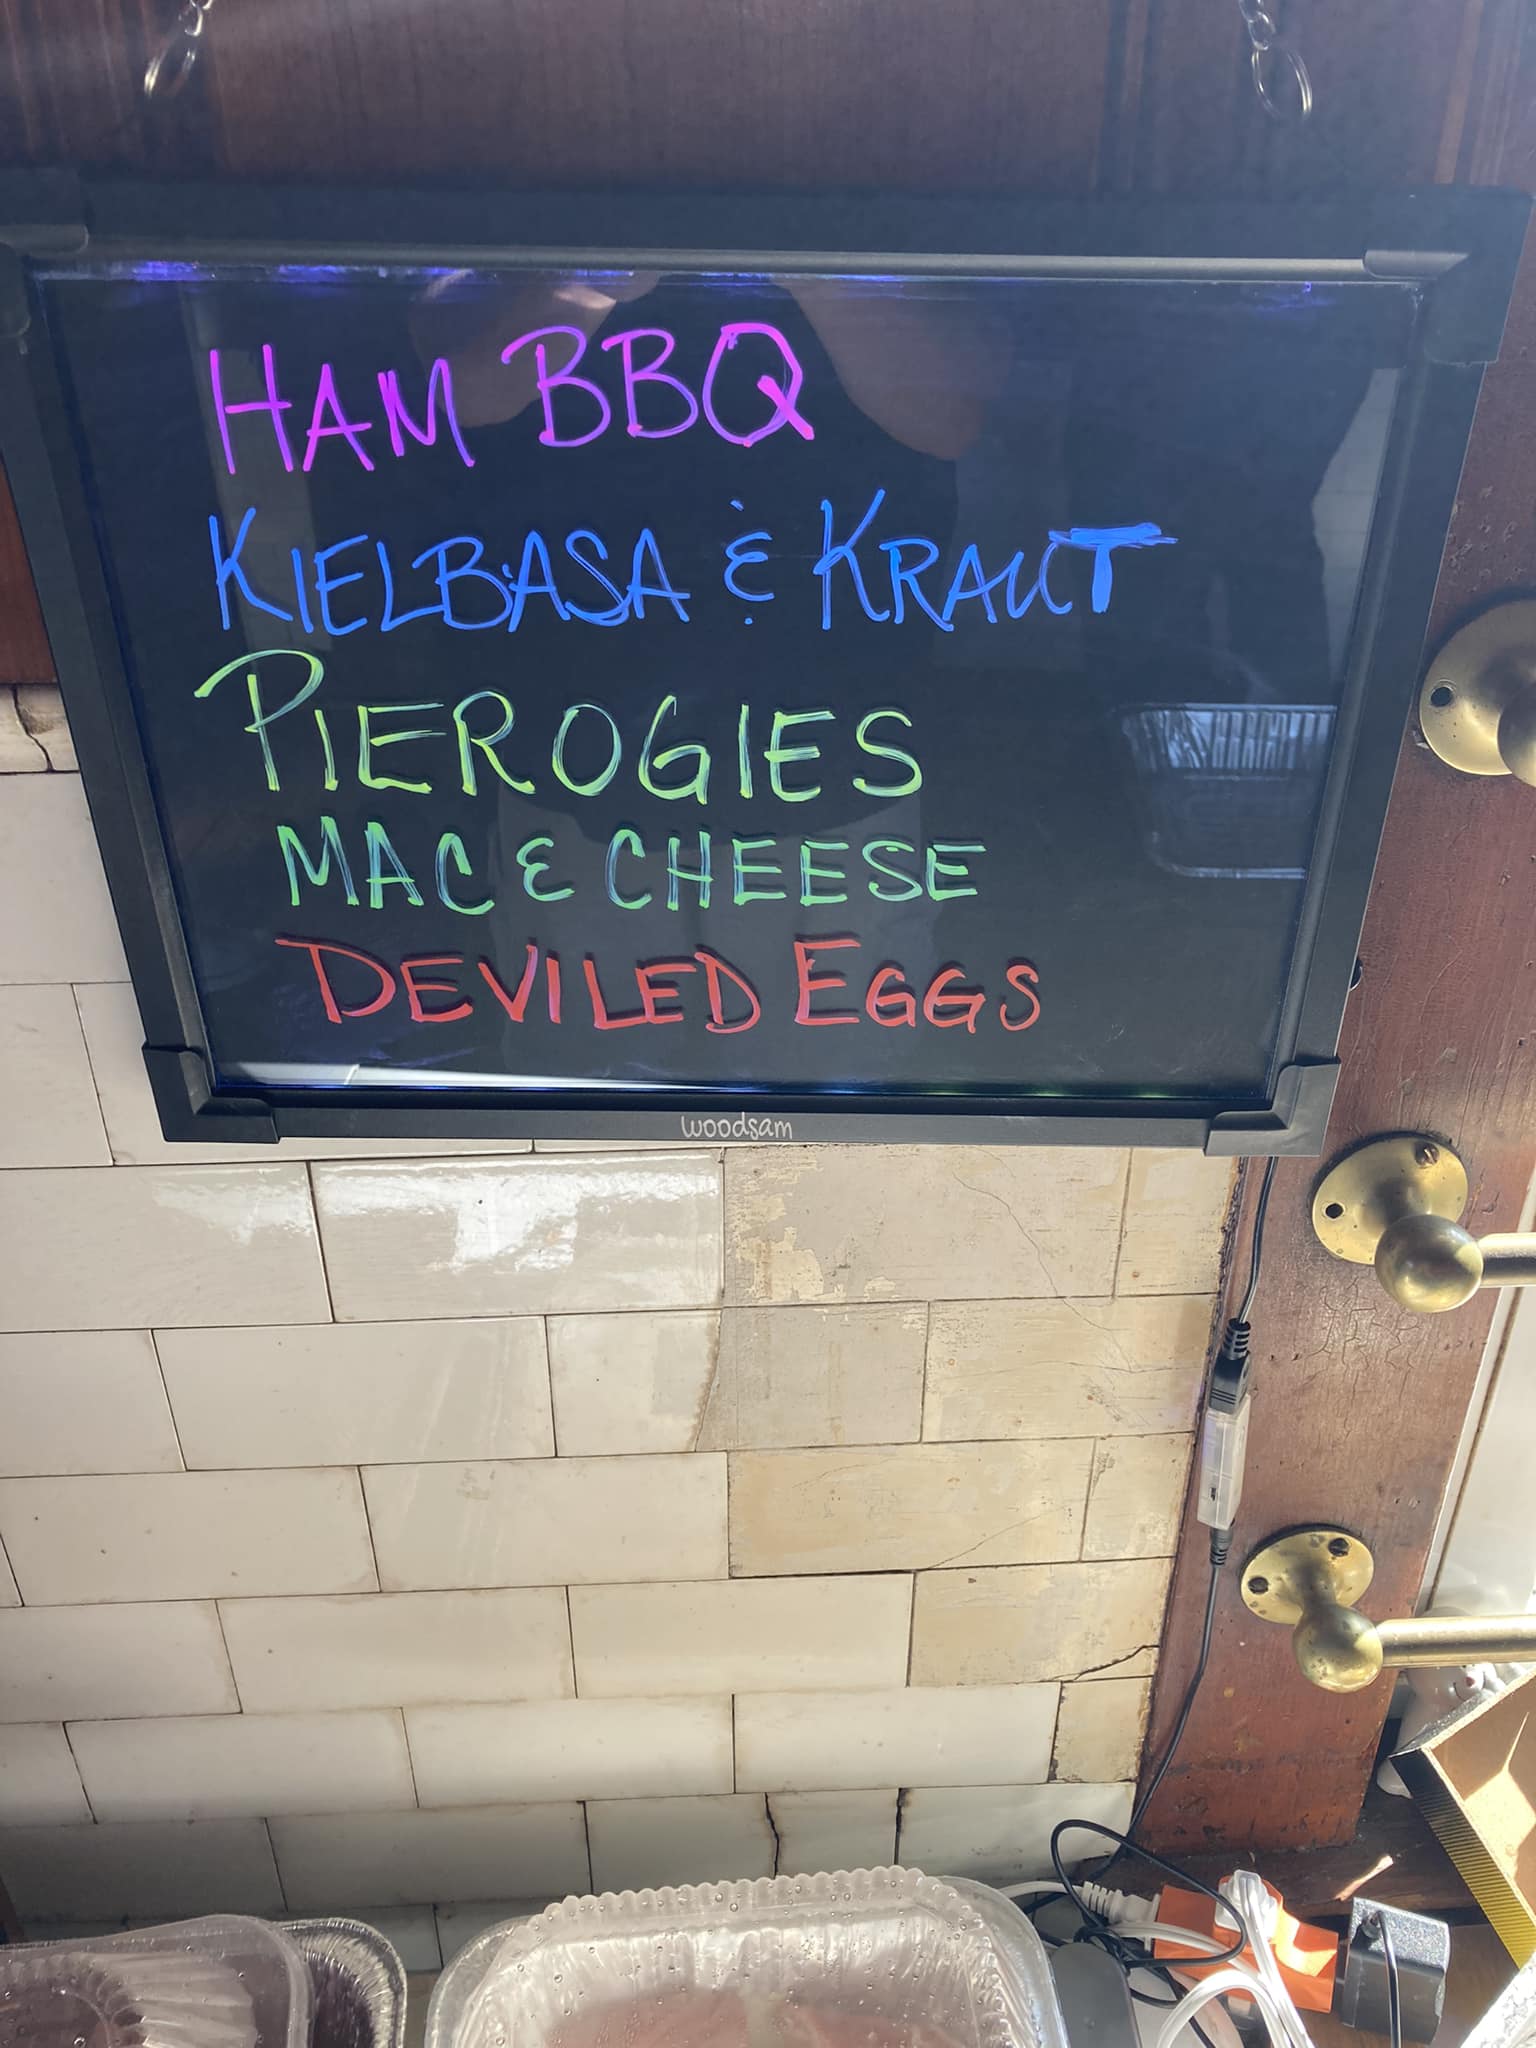 HAM BBQ
KIELBASA & KRAUT
PIEROGIES
MAC & CHEESE
DEVILED EGGS
woodsam